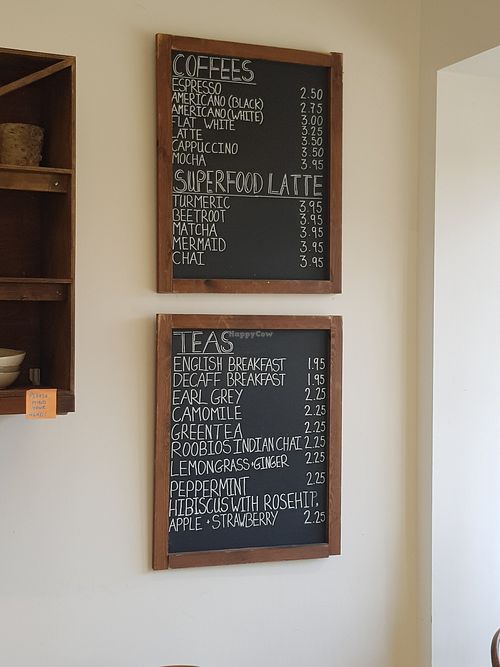 COFFEES
ESPRESSO 2.50
AMERICANO (BLACK) 2.75
AMERICANO (WHITE) 3.00
FLAT WHITE 3.25
LATTE 3.50
CAPPUCCINO 3.50
MOCHA 3.95
SUPERFOOD LATTE
TURMERIC 3.95
BEETROOT 3.95
MATCHA 3.95
MERMAID 3.95
CHAI 3.95
HappyCow
TEAS
ENGLISH BREAKFAST 1.95
DECAFF BREAKFAST 1.95
EARL GREY 2.25
CAMOMILE 2.25
GREEN TEA 2.25
ROOBIOS INDIAN CHAI 2.25
LEMONGRASS + GINGER 2.25
PEPPERMINT 2.25
HIBISCUS WITH ROSEHIP,
APPLE + STRAWBERRY 2.25
PLEASE
MIND
YOUR
HEAD!